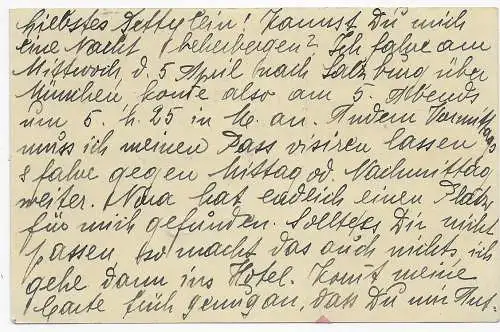 Liebstes Bettylein! Kannst Du mich
eine Nacht beherbergen? Ich fahre am
Mittwoch d. 5 April nach Salzburg über
München, komme also am 5. Abends
um 5. h. 25 in M. an. Andern Vormittags
muss ich meinen Pass visiren lassen
& fahre gegen Mittag od. Nachmittag
weiter. Nora hat endlich einen Platz
für mich gefunden. Solltess Dir nicht
passen so macht das auch nichts, ich
gehe dann ins Hotel. Komt meine
Carte früh genug an, dass Du mir Ant-